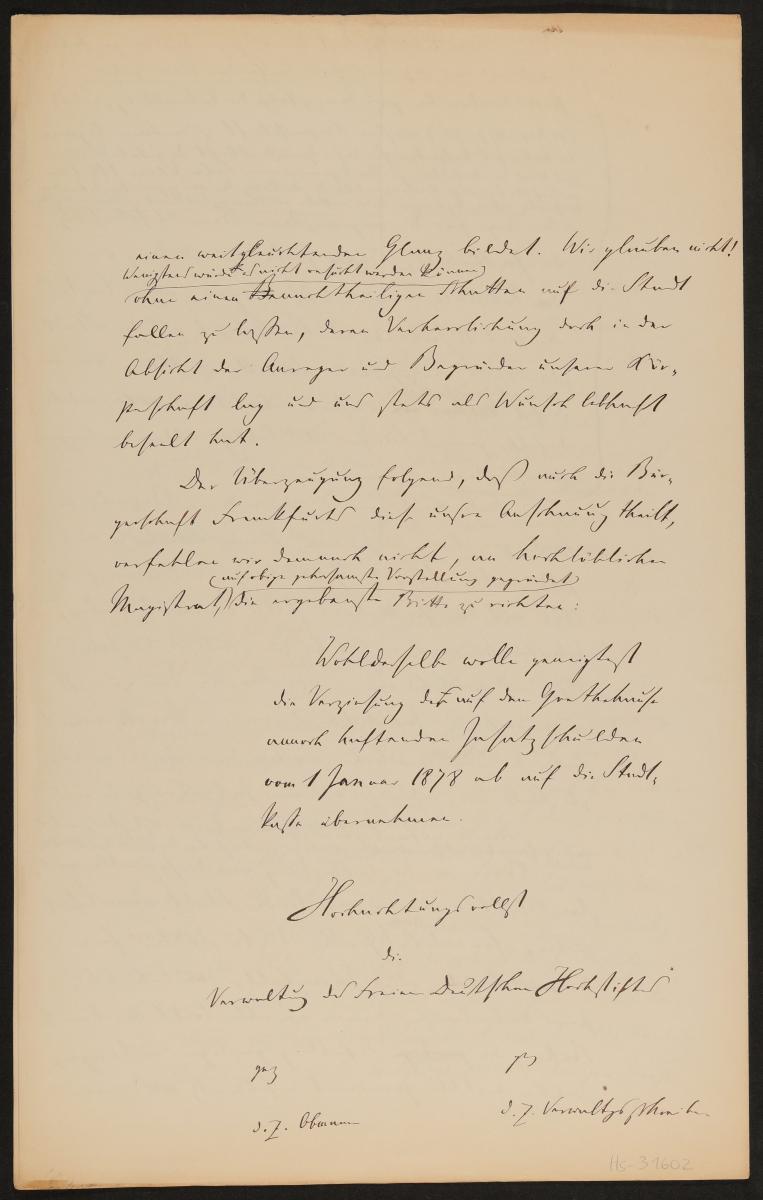 einen weitleuchtenden Glanz bildet. Wir glauben nicht!
Wenigstens würde es nicht versucht werden können
ohne einen nachtheiligen Schatten auf die Stadt
fallen zu lassen, deren Verherrlichung doch in der
Absicht der Anreger und Begründer unserer Kör-
perschaft lag und uns stets als Wunsch lebhaft
beseelt hat.
Der Überzeugung folgend, daß auch die Bür-
gerschaft Frankfurts diese unsre Anschauung theilt,
verfehlen wir demnach nicht, an hochlöblichen
(auf obige gehorsamste Vorstellung gegründet)
Magistrat, die ergebenste Bitte zu richten:
Wohlderselbe wolle geneigtest
die Verzinsung der auf dem Goethehause
annoch haftenden Insatzschulden
vom 1 Januar 1878 ab auf die Stadt-
kasse übernehmen.
Hochachtungsvollst
die
Verwaltung des Freien Deutschen Hochstiftes
gez
gez
d. Z. Obmann
d. Z. Verwaltgsschreiber
Hs-31602